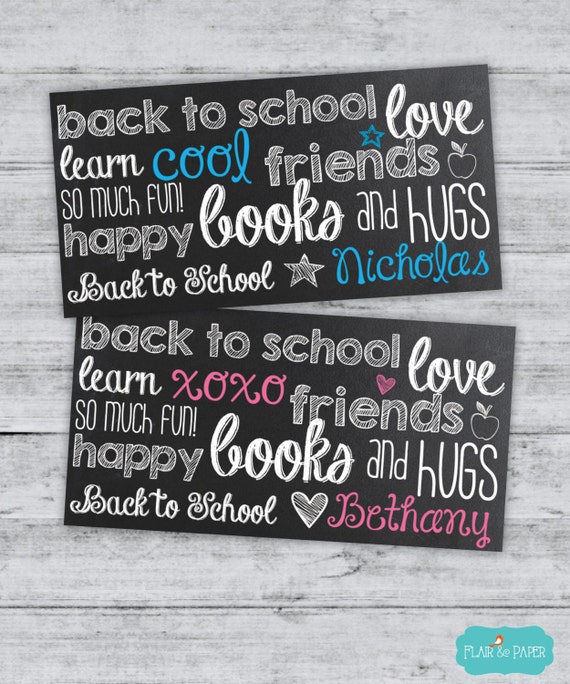 back to school love
learn cool friends
so much fun! books and hugs
happy
Back to School Nicholas
back to school love
learn xoxo friends
so much fun! books and hugs
happy
Back to School Bethany
Flair & Paper